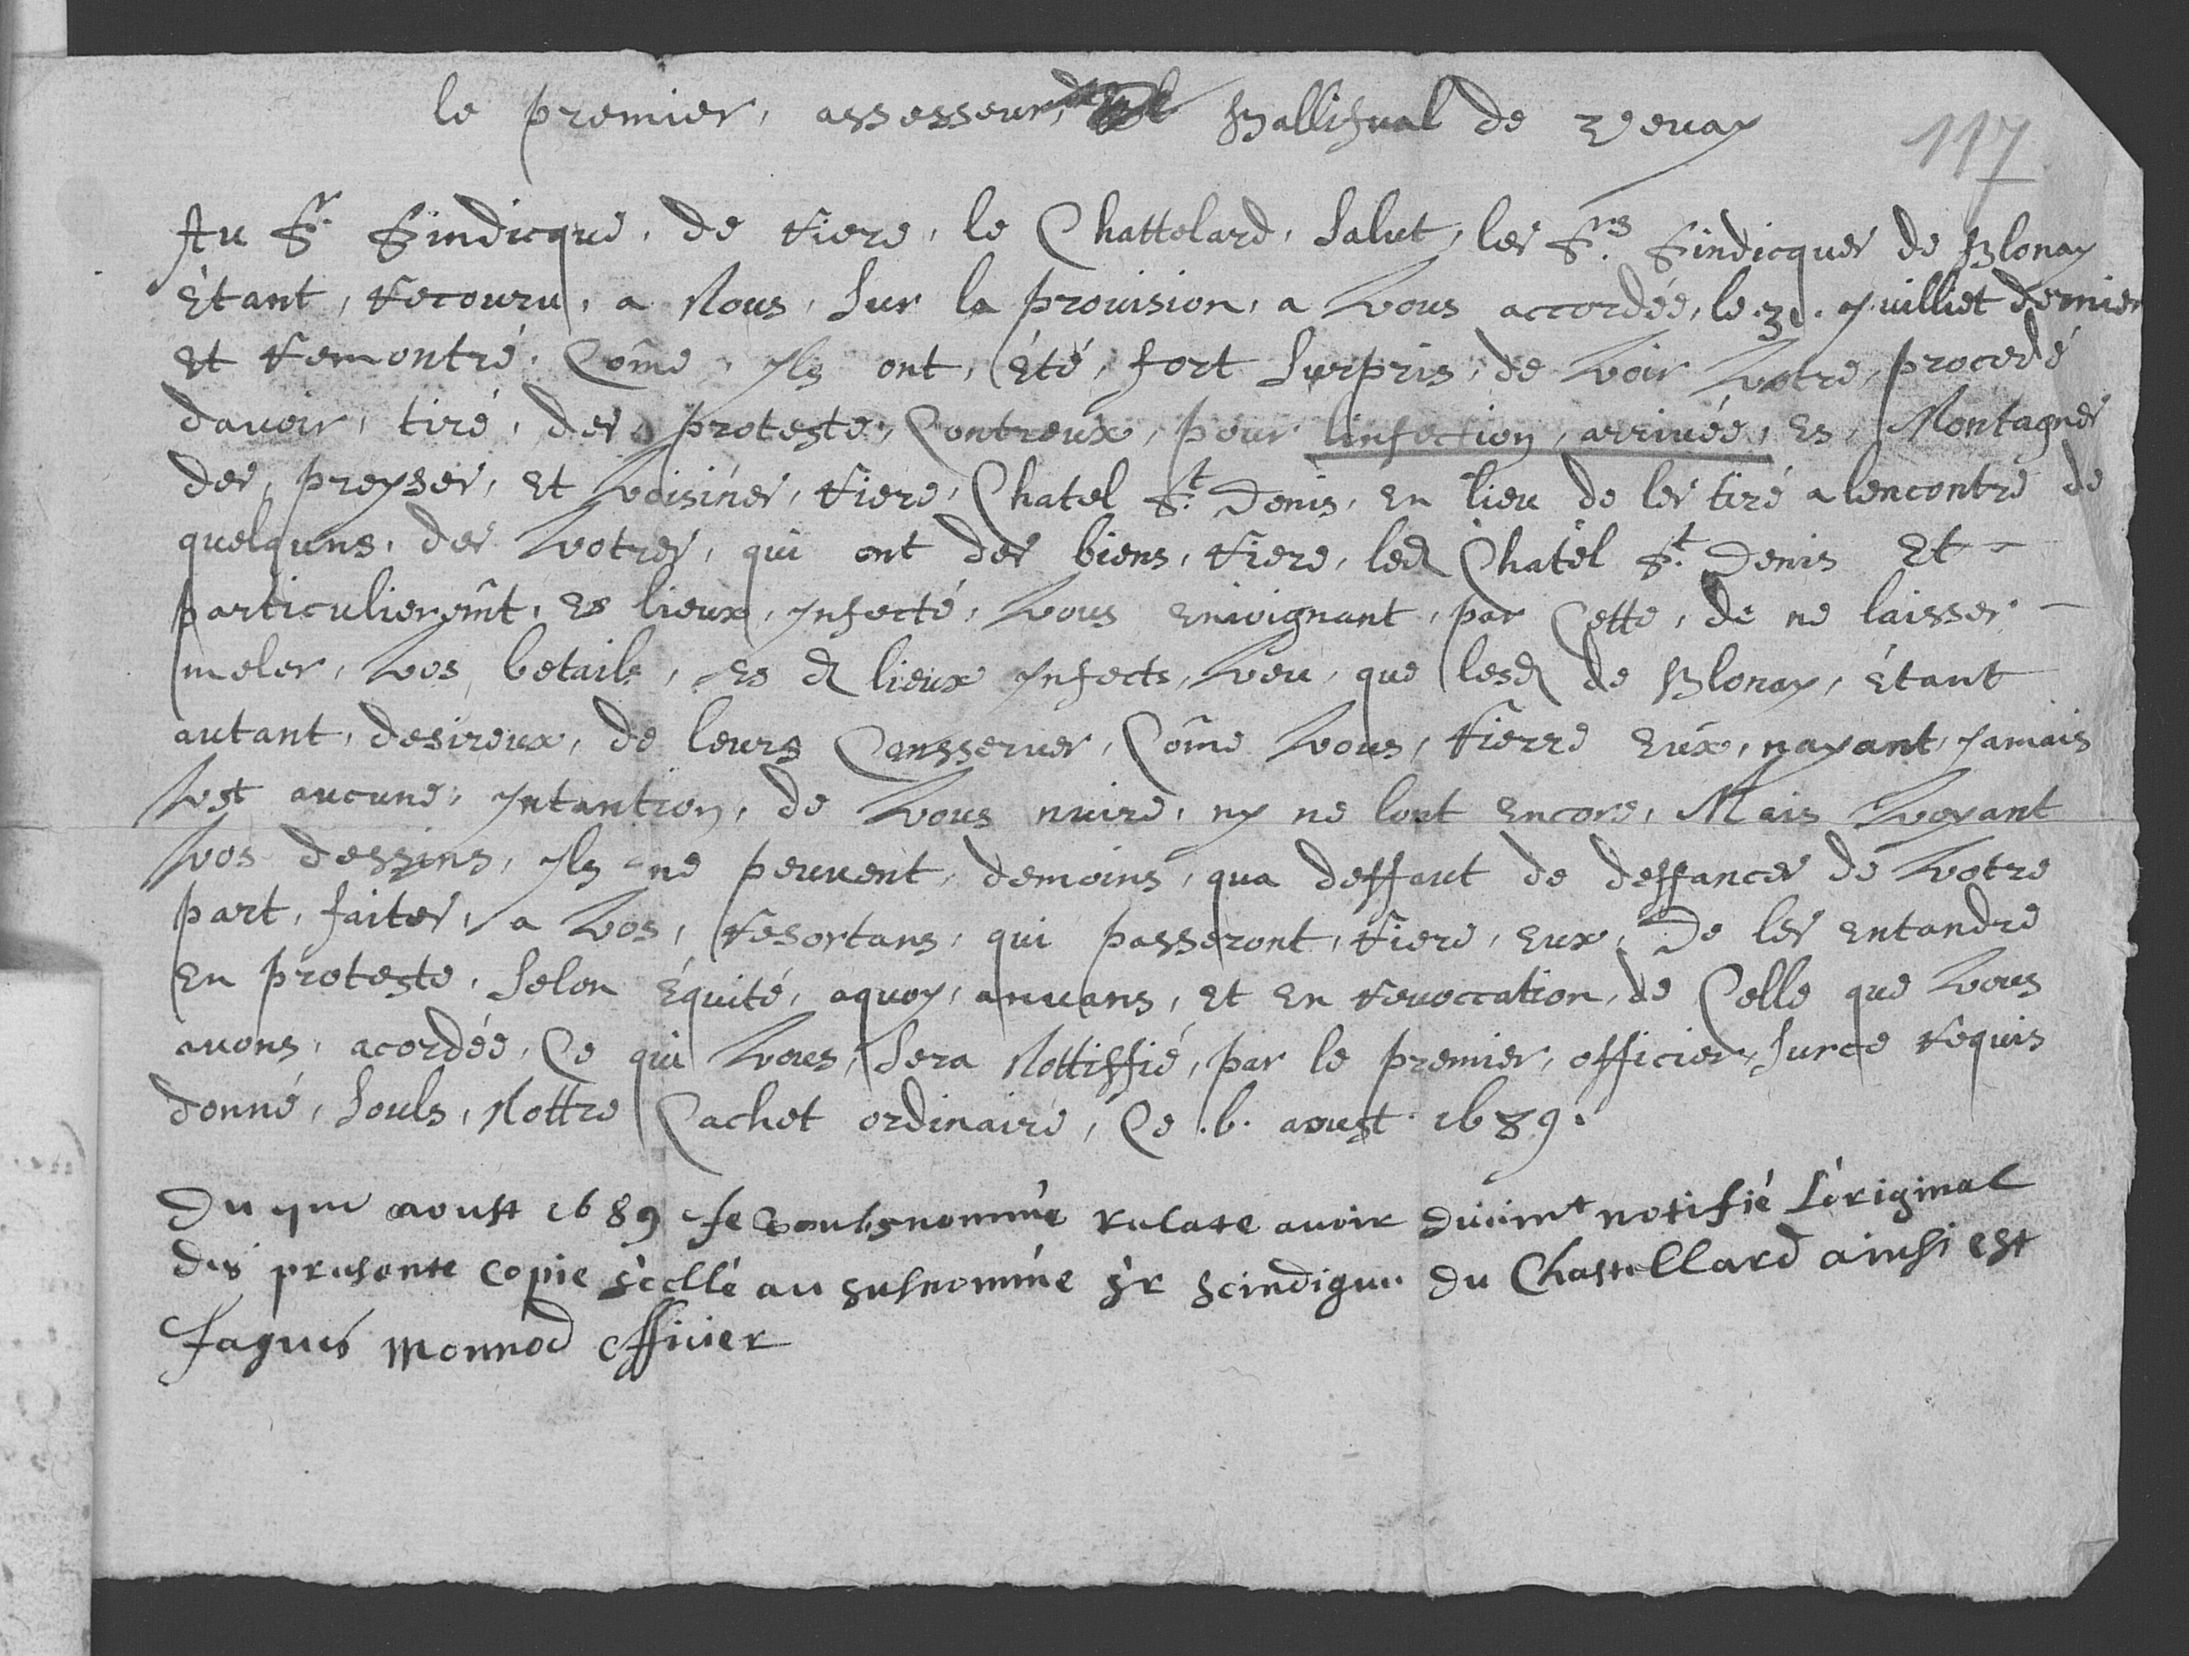 le premier, assesseur, Ballifual de Vevay
117
Au Sr. Sindicque, de riere, le Chattelard, Salut, les Srs. Sindicques de Blonay
Étant, recouru, a Nous, sur la provision, a vous accordée, le 31. Juilliet dernier
Et remontré, Come, Ils ont, été, fort surpris, de voir votre, procedé
davoir, tiré, des proteste, Contreux, pour linfection, arrivée, Es, Montagnes
des, preyses, Et voisines, riere, Chatel St. Denis, En lieu de les tiré a lencontre de
quelquns, des votres, qui ont des biens, riere, led Chatel St. Denis Et
particulieremt, Es lieux, Infecté, vous Enioignant, par Cette, de ne laisser
meler, vos, betails, Es d lieux Infects, veu, que lesd de Blonay, étant
autant, desireux, de leurs Consserver, Come vous, rierre Eux, nayant, Jamais
aucune, Intantion, de vous nuire, ny ne lont Encore, Mais voyant
vos dessins, Ils ne peuvent, demoins, qua deffaut de deffances de votre
part, faites, a vos, resortans, qui passeront, riere, Eux, De les Entandre
En proteste, Selon Équité, aquoy, anuans, Et En revoccation, de Celle que vous
avons, acordée, Ce qui vous, sera Nottiffié, par le premier, officier, surce requis
donné, souls, Nottre Cachet ordinaire, Ce .6. aoust 1689.
Du aoust 1689 Je soubsnommé relate avoir duëmt notifié Loriginal
des presente copie scellé au susnommé sr scindique du Chastellard ainsi est
Jaques Monnod officier